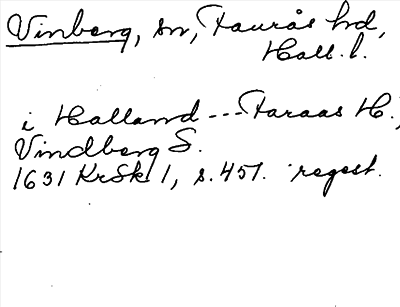 Vinberg, sn, Faurås hd,
Hall. l.
i Halland --- Faraas H.,
Vindberg S.
1631 KrSk 1, s. 457. regest.